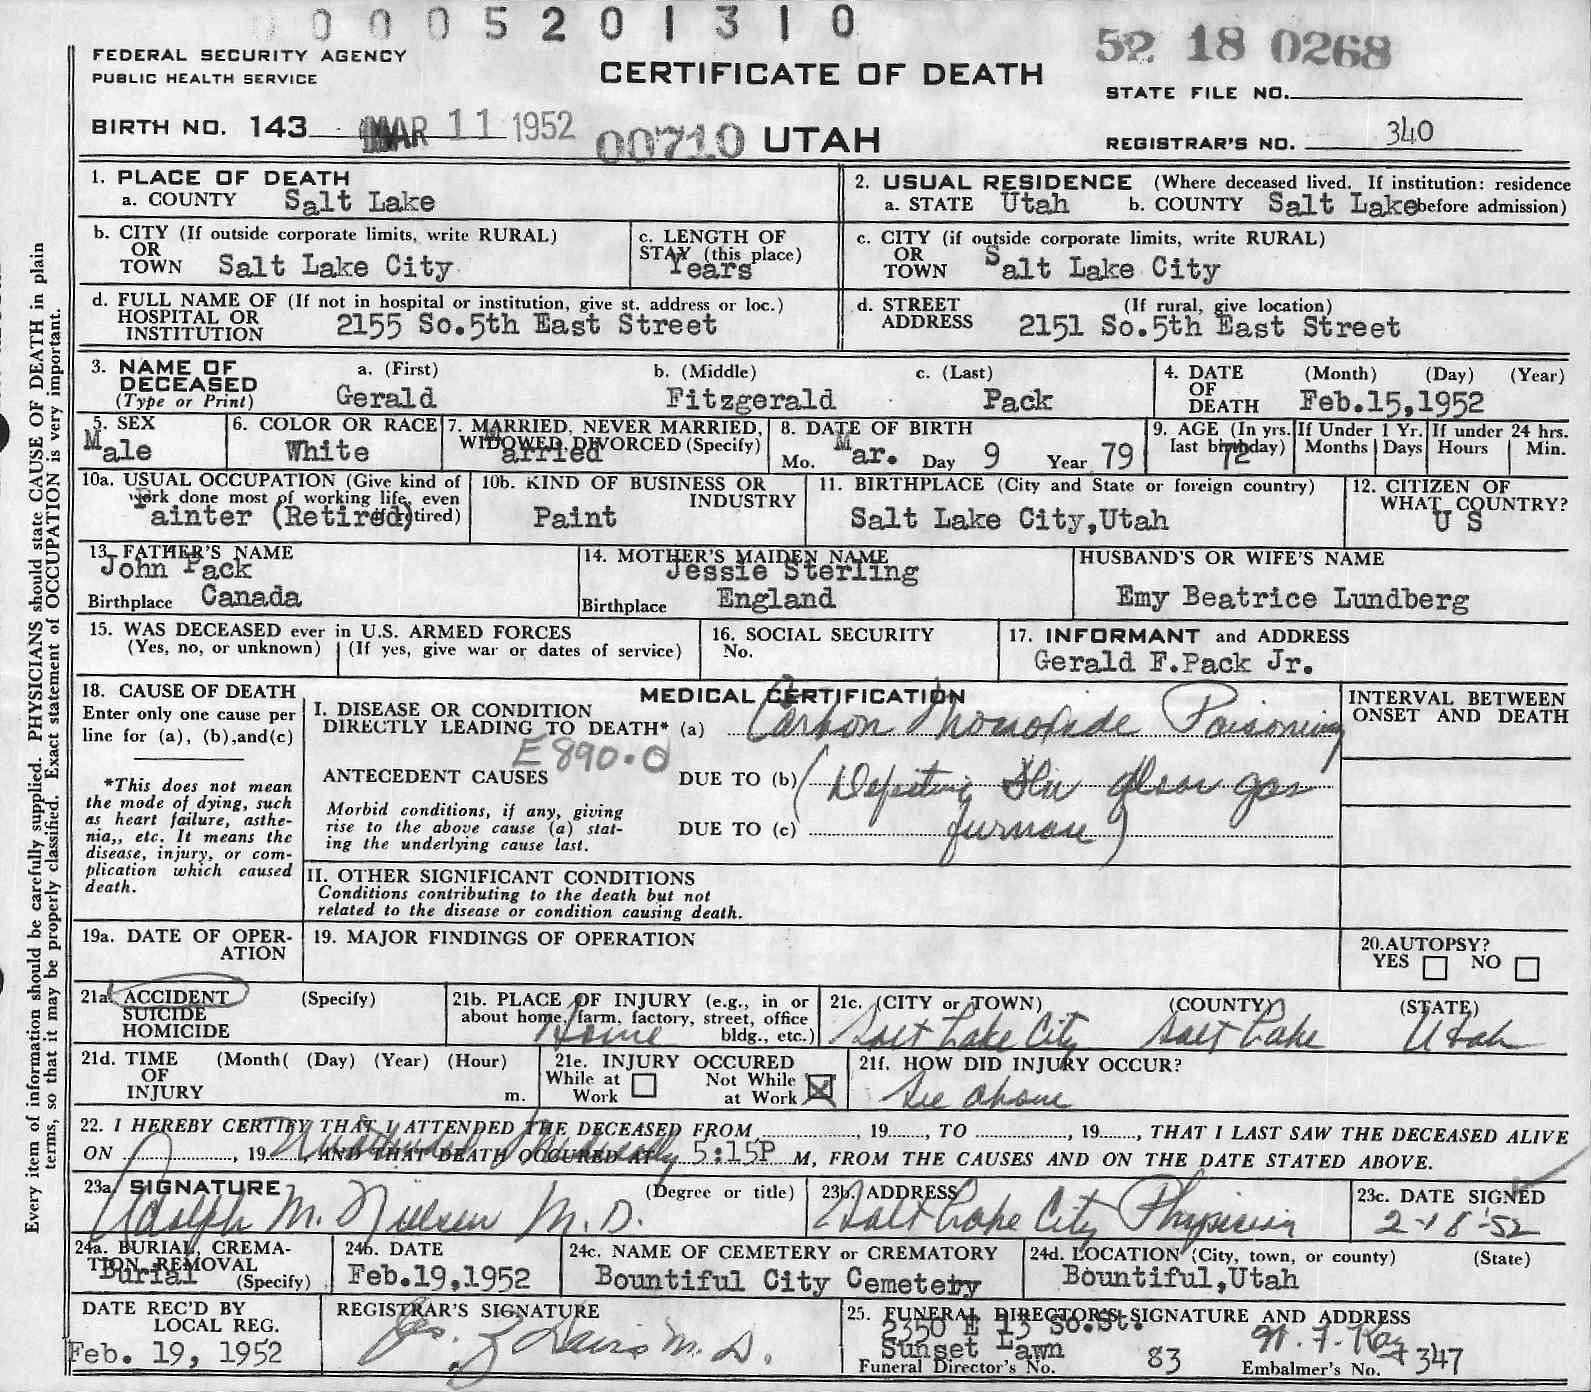 0 0 0 5 2 0 1 3 1 0
FEDERAL SECURITY AGENCY
PUBLIC HEALTH SERVICE
CERTIFICATE OF DEATH
52 18 0268
STATE FILE NO.
BIRTH NO. 143 MAR 11 1952 00710 UTAH
REGISTRAR'S NO. 340
1. PLACE OF DEATH
a. COUNTY Salt Lake
2. USUAL RESIDENCE (Where deceased lived. If institution: residence
a. STATE Utah b. COUNTY Salt Lake before admission)
b. CITY (If outside corporate limits, write RURAL)
OR
TOWN Salt Lake City
c. LENGTH OF
STAY (this place)
Years
c. CITY (if outside corporate limits, write RURAL)
OR
TOWN Salt Lake City
d. FULL NAME OF (If not in hospital or institution, give st. address or loc.)
HOSPITAL OR
INSTITUTION 2155 So.5th East Street
d. STREET (If rural, give location)
ADDRESS 2151 So.5th East Street
3. NAME OF
DECEASED
(Type or Print)
a. (First) b. (Middle) c. (Last)
Gerald Fitzgerald Pack
4. DATE (Month) (Day) (Year)
OF
DEATH Feb.15,1952
5. SEX
Male
6. COLOR OR RACE
White
7. MARRIED, NEVER MARRIED,
WIDOWED, DIVORCED (Specify)
Married
8. DATE OF BIRTH
Mo. Mar. Day 9 Year 79
9. AGE (In yrs.
last birthday)
72
If Under 1 Yr.
Months Days
If under 24 hrs.
Hours Min.
10a. USUAL OCCUPATION (Give kind of
work done most of working life, even
if retired)
Painter (Retired)
10b. KIND OF BUSINESS OR
INDUSTRY
Paint
11. BIRTHPLACE (City and State or foreign country)
Salt Lake City,Utah
12. CITIZEN OF
WHAT COUNTRY?
U S
13. FATHER'S NAME
John Pack
Birthplace Canada
14. MOTHER'S MAIDEN NAME
Jessie Sterling
Birthplace England
HUSBAND'S OR WIFE'S NAME
Emy Beatrice Lundberg
15. WAS DECEASED ever in U.S. ARMED FORCES
(Yes, no, or unknown) (If yes, give war or dates of service)
16. SOCIAL SECURITY
No.
17. INFORMANT and ADDRESS
Gerald F.Pack Jr.
18. CAUSE OF DEATH
Enter only one cause per
line for (a), (b),and(c)
*This does not mean
the mode of dying, such
as heart failure, asthe-
nia,, etc. It means the
disease, injury, or com-
plication which caused
death.
MEDICAL CERTIFICATION
I. DISEASE OR CONDITION
DIRECTLY LEADING TO DEATH* (a) Carbon Monoxide Poisoning
E890.0
ANTECEDENT CAUSES DUE TO (b) (Defective Flu gas
Morbid conditions, if any, giving
rise to the above cause (a) stat-
ing the underlying cause last.
DUE TO (c) furnace)
II. OTHER SIGNIFICANT CONDITIONS
Conditions contributing to the death but not
related to the disease or condition causing death.
INTERVAL BETWEEN
ONSET AND DEATH
19a. DATE OF OPER-
ATION
19. MAJOR FINDINGS OF OPERATION
20.AUTOPSY?
YES NO
21a. ACCIDENT (Specify)
SUICIDE
HOMICIDE
21b. PLACE OF INJURY (e.g., in or
about home, farm, factory, street, office
bldg., etc.)
Home
21c. (CITY or TOWN) (COUNTY) (STATE)
Salt Lake City Salt Lake Utah
21d. TIME (Month( (Day) (Year) (Hour)
OF
INJURY m.
21e. INJURY OCCURED
While at Work Not While at Work
21f. HOW DID INJURY OCCUR?
See above
22. I HEREBY CERTIFY THAT I ATTENDED THE DECEASED FROM , 19 , TO , 19 , THAT I LAST SAW THE DECEASED ALIVE
ON , 19 , AND THAT DEATH OCCURED AT 5:15P M, FROM THE CAUSES AND ON THE DATE STATED ABOVE.
23a. SIGNATURE (Degree or title)
Adolph M. Nielsen M.D.
23b. ADDRESS
Salt Lake City Physician
23c. DATE SIGNED
2-18-52
24a. BURIAL, CREMA-
TION, REMOVAL
(Specify)
Burial
24b. DATE
Feb.19,1952
24c. NAME OF CEMETERY or CREMATORY
Bountiful City Cemetery
24d. LOCATION (City, town, or county) (State)
Bountiful,Utah
DATE REC'D BY
LOCAL REG.
Feb. 19, 1952
REGISTRAR'S SIGNATURE
M.D.
25. FUNERAL DIRECTOR'S SIGNATURE AND ADDRESS
2350 E 13 So.St.
Sunset Lawn
Funeral Director's No. 83
Embalmer's No. 347
Every item of information should be carefully supplied. PHYSICIANS should state CAUSE OF DEATH in plain
terms, so that it may be properly classified. Exact statement of OCCUPATION is very important.